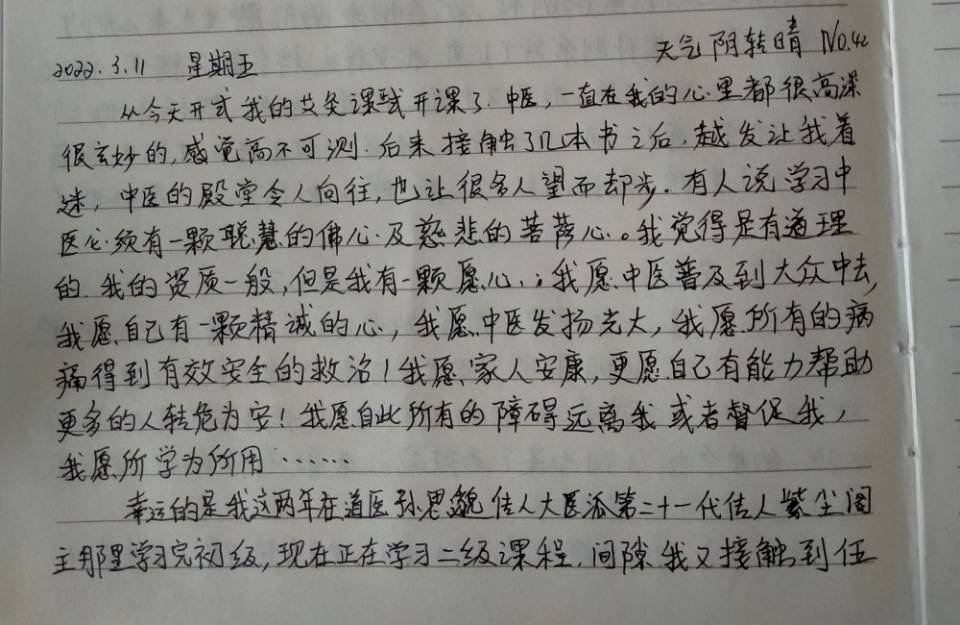 2022.3.11 星期五 天气阴转晴 No.42
从今天开式我的艾灸课或开课了.中医,一直在我的心里都很高深
很玄妙的,感觉高不可测.后来接触了几本书之后,越发让我着
迷,中医的殿堂令人向往,也让很多人望而却步.有人说学习中
医必须有一颗聪慧的佛心及慈悲的菩萨心。我觉得是有道理
的.我的资质一般,但是我有一颗愿心,;我愿中医普及到大众中去,
我愿自己有一颗精诚的心,我愿中医发扬光大,我愿所有的病
痛得到有效安全的救治!我愿家人安康,更愿自己有能力帮助
更多的人转危为安!我愿自此所有的障碍远离我或者督促我,
我愿所学为所用……
幸运的是我这两年在道医孙思邈传人大医派第二十一代传人紫尘阁
主那里学习完初级,现在正在学习二级课程.间隙我又接触到任